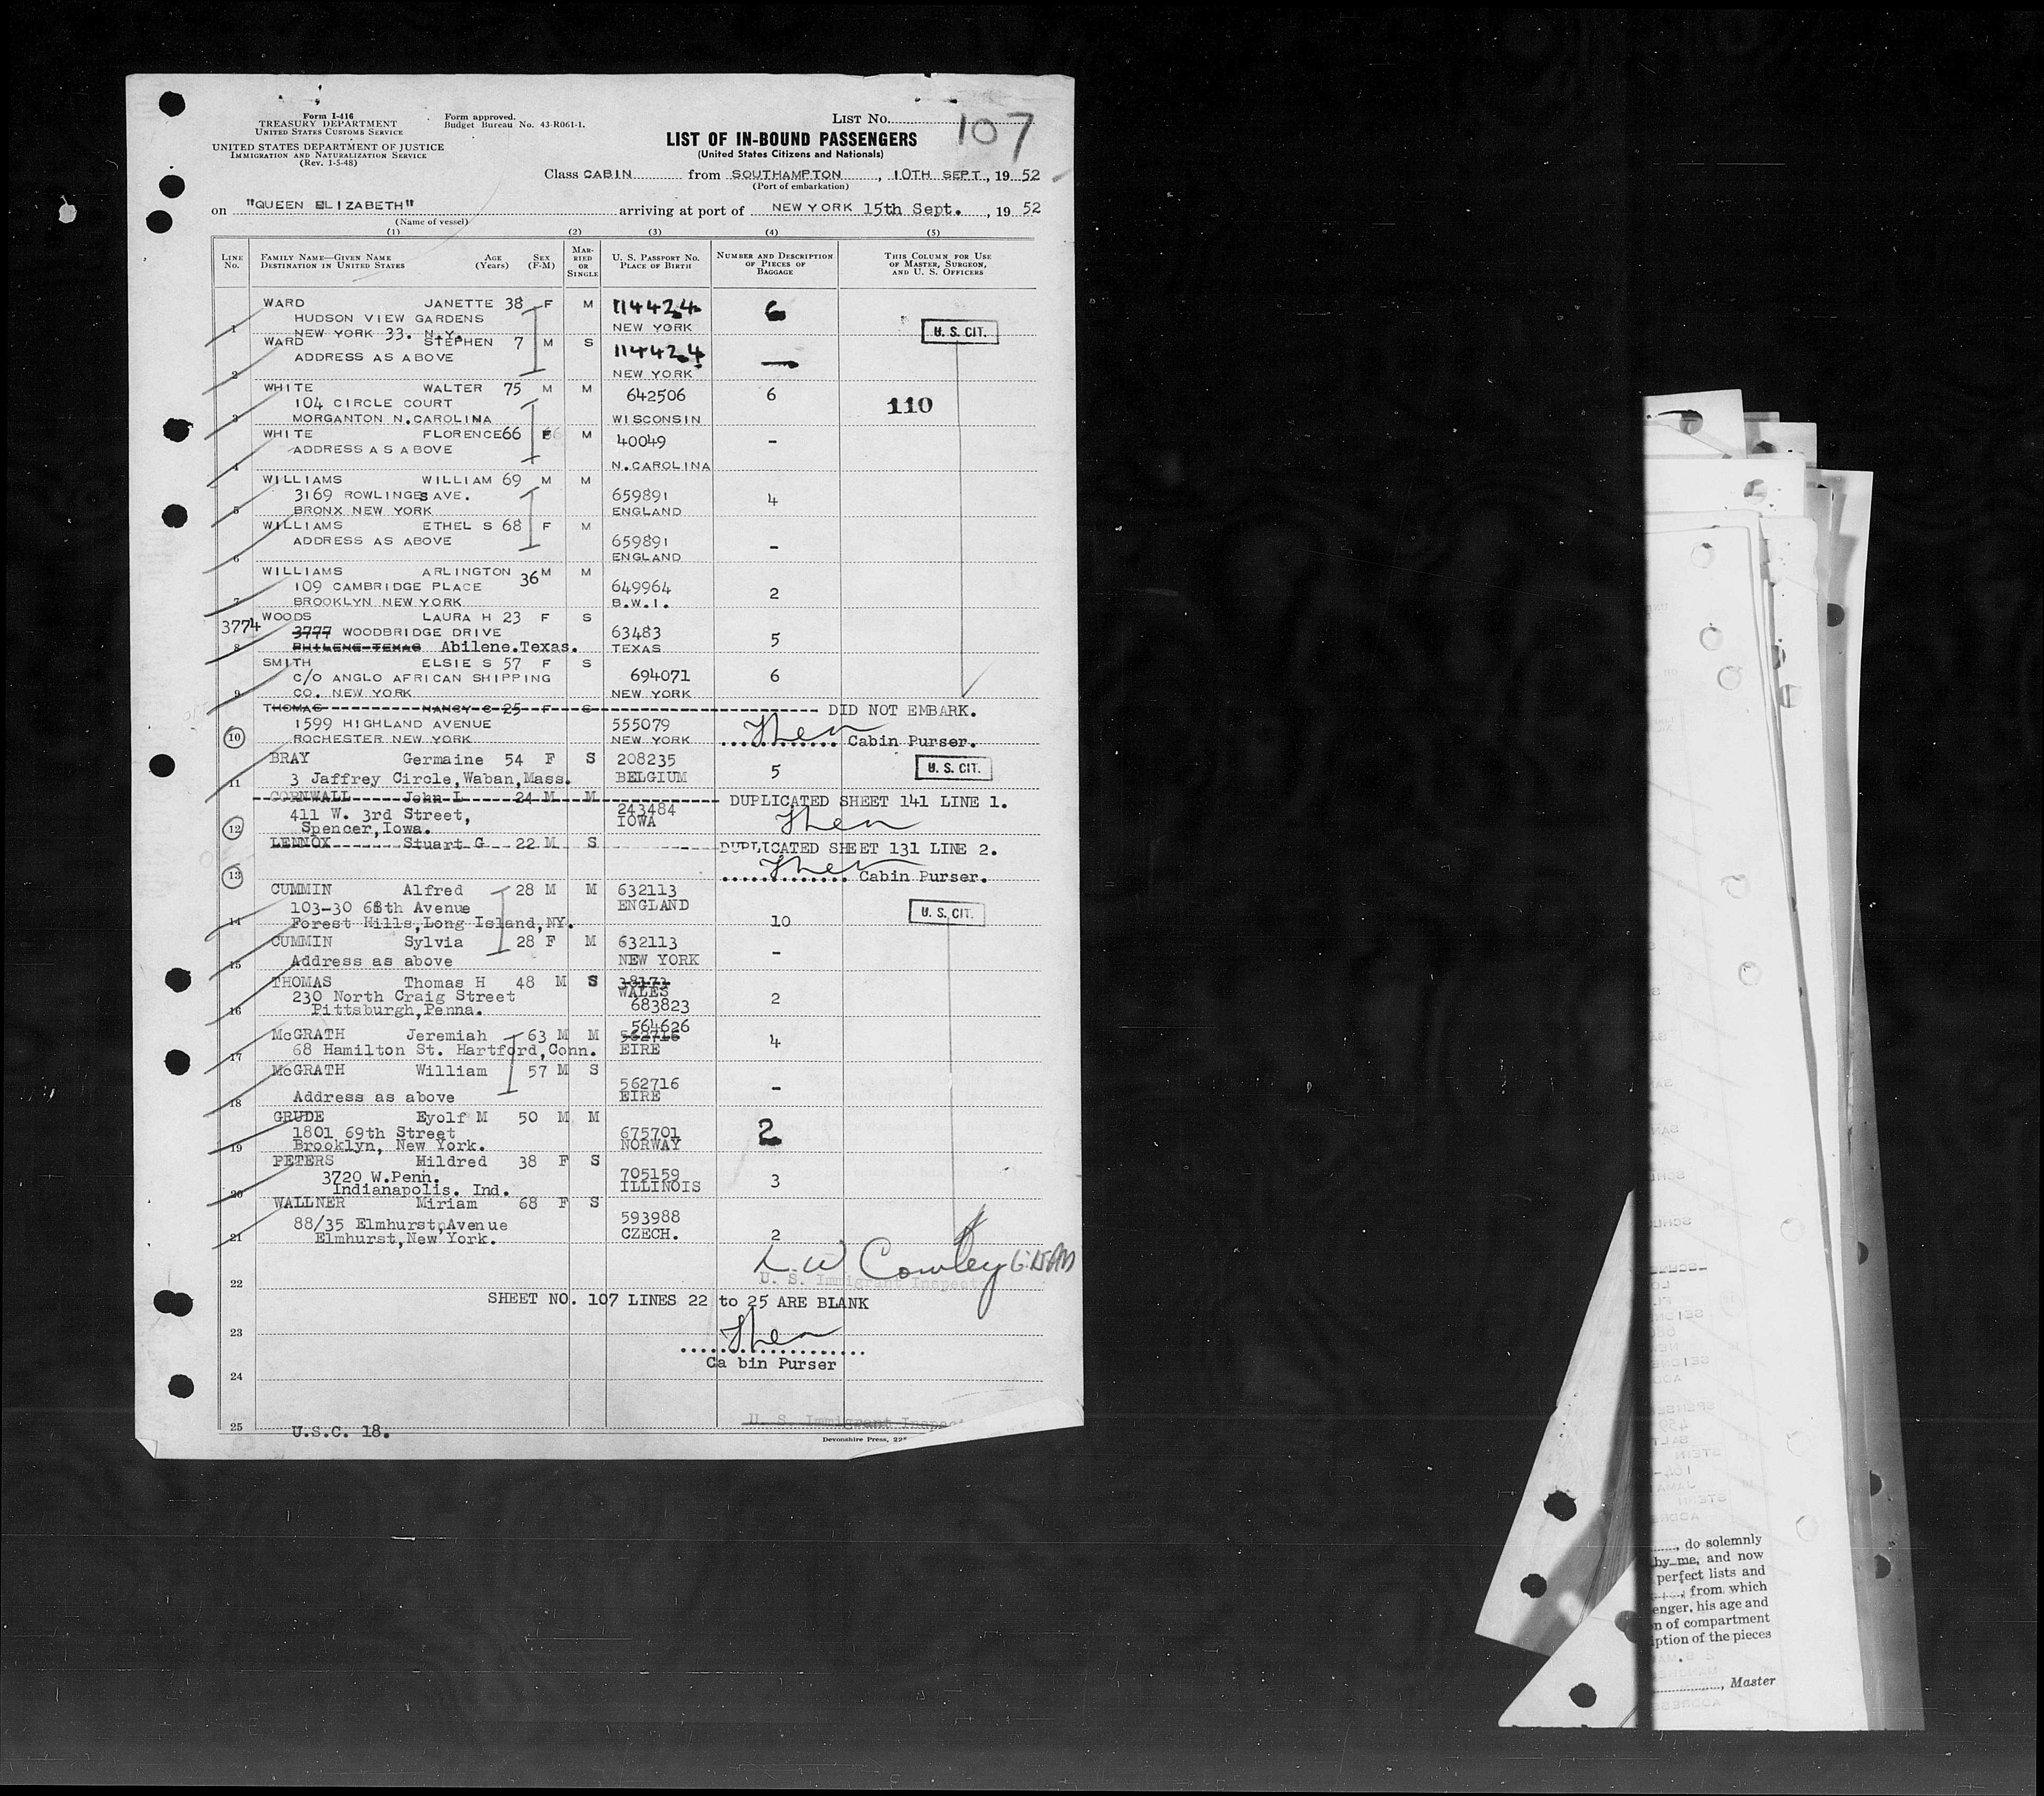 Form I-416
TREASURY DEPARTMENT
UNITED STATES CUSTOMS SERVICE
UNITED STATES DEPARTMENT OF JUSTICE
IMMIGRATION AND NATURALIZATION SERVICE
(Rev. 1-5-48)
Form approved.
Budget Bureau No. 43-R061-1.
LIST No. 107
LIST OF IN-BOUND PASSENGERS
(United States Citizens and Nationals)
Class CABIN from SOUTHAMPTON, 10TH SEPT, 19 52
(Port of embarkation)
on "QUEEN ELIZABETH" arriving at port of NEW YORK 15th Sept., 19 52
(Name of vessel)
(1) (2) (3) (4) (5)
LINE No. FAMILY NAME—GIVEN NAME DESTINATION IN UNITED STATES AGE (Years) SEX (F-M) MARRIED OR SINGLE U. S. PASSPORT No. PLACE OF BIRTH NUMBER AND DESCRIPTION OF PIECES OF BAGGAGE THIS COLUMN FOR USE OF MASTER, SURGEON, AND U. S. OFFICERS
WARD JANETTE 38 F M 114424 6
HUDSON VIEW GARDENS NEW YORK
1 NEW YORK 33. N.Y. U. S. CIT.
WARD STEPHEN 7 M S 114424 —
ADDRESS AS ABOVE
2 NEW YORK
WHITE WALTER 75 M M 642506 6
104 CIRCLE COURT 110
3 MORGANTON N.CAROLINA WISCONSIN
WHITE FLORENCE 66 F M 40049 -
ADDRESS AS ABOVE
4 N.CAROLINA
WILLIAMS WILLIAM 69 M M
3169 ROWLINGES AVE. 659891 4
5 BRONX NEW YORK ENGLAND
WILLIAMS ETHEL S 68 F M
ADDRESS AS ABOVE 659891 -
6 ENGLAND
WILLIAMS ARLINGTON 36 M M
109 CAMBRIDGE PLACE 649964 2
7 BROOKLYN NEW YORK B.W.I.
WOODS LAURA H 23 F S
3774 3777 WOODBRIDGE DRIVE 63483 5
8 PHILENE TEXAS Abilene.Texas. TEXAS
SMITH ELSIE S 57 F S
C/O ANGLO AFRICAN SHIPPING 694071 6
9 CO. NEW YORK NEW YORK
THOMAS NANCY C 25 F S DID NOT EMBARK.
1599 HIGHLAND AVENUE 555079
10 ROCHESTER NEW YORK NEW YORK Cabin Purser.
BRAY Germaine 54 F S 208235
11 3 Jaffrey Circle,Waban,Mass. BELGIUM 5 U. S. CIT.
CORNWALL John L 24 M M DUPLICATED SHEET 141 LINE 1.
411 W. 3rd Street, 243484
12 Spencer,Iowa. IOWA
LENNOX Stuart G 22 M S DUPLICATED SHEET 131 LINE 2.
13 Cabin Purser.
CUMMIN Alfred 28 M M 632113
103-30 68th Avenue ENGLAND U. S. CIT.
14 Forest Hills,Long Island,NY. 10
CUMMIN Sylvia 28 F M 632113
15 Address as above NEW YORK -
THOMAS Thomas H 48 M S 38171
230 North Craig Street WALES 2
16 Pittsburgh,Penna. 683823
564626
McGRATH Jeremiah 63 M M 562716 4
17 68 Hamilton St. Hartford,Conn. EIRE
McGRATH William 57 M S
562716 -
18 Address as above EIRE
GRUDE Eyolf M 50 M M
1801 69th Street 675701 2
19 Brooklyn, New York. NORWAY
PETERS Mildred 38 F S
3720 W.Penn. 705159 3
20 Indianapolis. Ind. ILLINOIS
WALLNER Miriam 68 F S
88/35 Elmhurst,Avenue 593988
21 Elmhurst,New York. CZECH. 2
L. W Cowley
22 U. S. Immigrant Inspector
SHEET NO. 107 LINES 22 to 25 ARE BLANK
23
Ca bin Purser
24
U. S. Immigrant Inspect
25
U.S.C. 18.
Devonshire Press, 22
, do solemnly
by me, and now
perfect lists and
, from which
enger, his age and
n of compartment
iption of the pieces
, Master